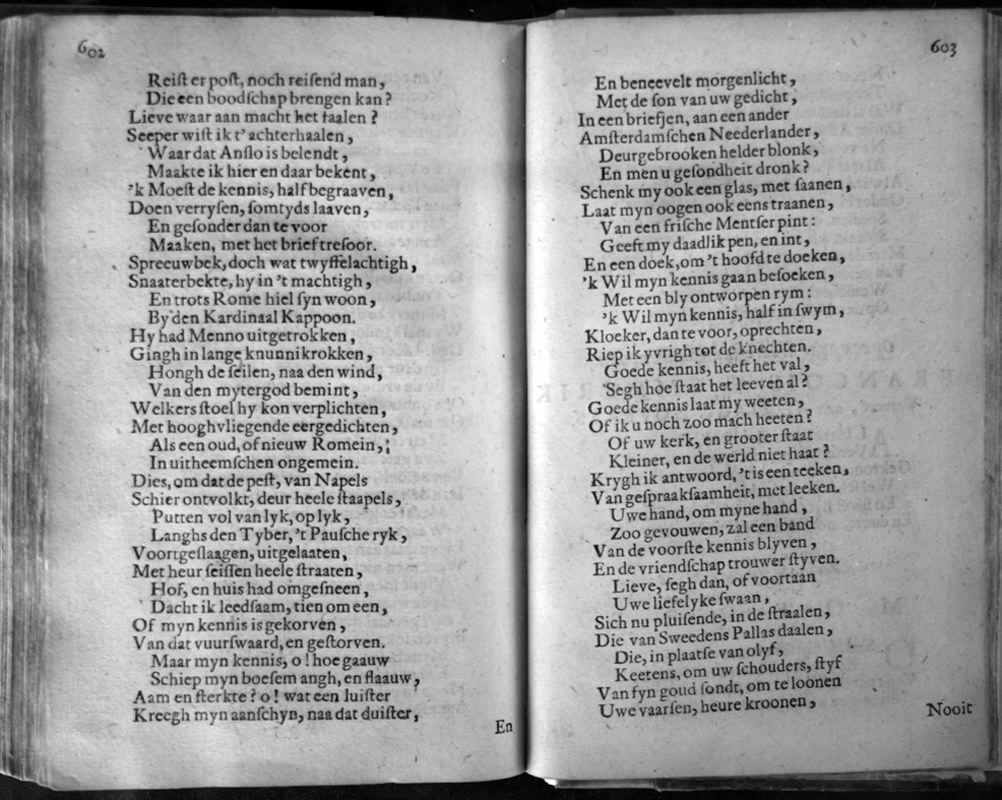 602
Reiſt er poſt, noch reiſend man,
Die een boodſchap brengen kan?
Lieve waar aan macht het taalen?
Seeper wiſt ik t' achterhaalen,
Waar dat Anſlo is belendt,
Maakte ik hier en daar bekent,
'k Moeſt de kennis, half begraaven,
Doen verryſen, ſomtyds laaven,
En geſonder dan te voor
Maaken, met het brief treſoor.
Spreeuwbek, doch wat twyffelachtigh,
Snaaterbekte, hy in 't machtigh,
En trots Rome hiel ſyn woon,
By den Kardinaal Kappoon.
Hy had Menno uitgetrokken,
Gingh in lange knunnikrokken,
Hongh de ſeilen, naa den wind,
Van den mytergod bemint,
Welkers ſtoel hy kon verplichten,
Met hooghvliegende eergedichten,
Als een oud, of nieuw Romein,;
In uitheemſchen ongemein.
Dies, om dat de peſt, van Napels
Schier ontvolkt, deur heele ſtaapels,
Putten vol van lyk, op lyk,
Langhs den Tyber, 't Pauſche ryk,
Voortgeſlaagen, uitgelaaten,
Met heur ſeiſſen heele ſtraaten,
Hof, en huis had omgeſneen,
Dacht ik leedſaam, tien om een,
Of myn kennis is gekorven,
Van dat vuurſwaard, en geſtorven.
Maar myn kennis, o! hoe gaauw
Schiep myn boeſem angh, en flaauw,
Aam en ſterkte? o! wat een luiſter
Kreegh myn aanſchyn, naa dat duiſter,
En
603
En beneevelt morgenlicht,
Met de ſon van uw gedicht,
In een briefjen, aan een ander
Amſterdamſchen Neederlander,
Deurgebrooken helder blonk,
En men u geſondheit dronk?
Schenk my ook een glas, met ſaanen,
Laat myn oogen ook eens traanen,
Van een friſche Mentſer pint:
Geeft my daadlik pen, en int,
En een doek, om 't hoofd te doeken,
'k Wil myn kennis gaan beſoeken,
Met een bly ontworpen rym:
'k Wil myn kennis, half in ſwym,
Kloeker, dan te voor, oprechten,
Riep ik yvrigh tot de knechten.
Goede kennis, heeft het val,
Segh hoe ſtaat het leeven al?
Goede kennis laat my weeten,
Of ik u noch zoo mach heeten?
Of uw kerk, en grooter ſtaat
Kleiner, en de werld niet haat?
Krygh ik antwoord, 't is een teeken,
Van geſpraakſaamheit, met leeken.
Uwe hand, om myne hand,
Zoo gevouwen, zal een band
Van de voorſte kennis blyven,
En de vriendſchap trouwer ſtyven.
Lieve, ſegh dan, of voortaan
Uwe liefelyke ſwaan,
Sich nu pluiſende, in de ſtraalen,
Die van Sweedens Pallas daalen,
Die, in plaatſe van olyf,
Keetens, om uw ſchouders, ſtyf
Van fyn goud ſondt, om te loonen
Uwe vaarſen, heure kroonen,
Nooit